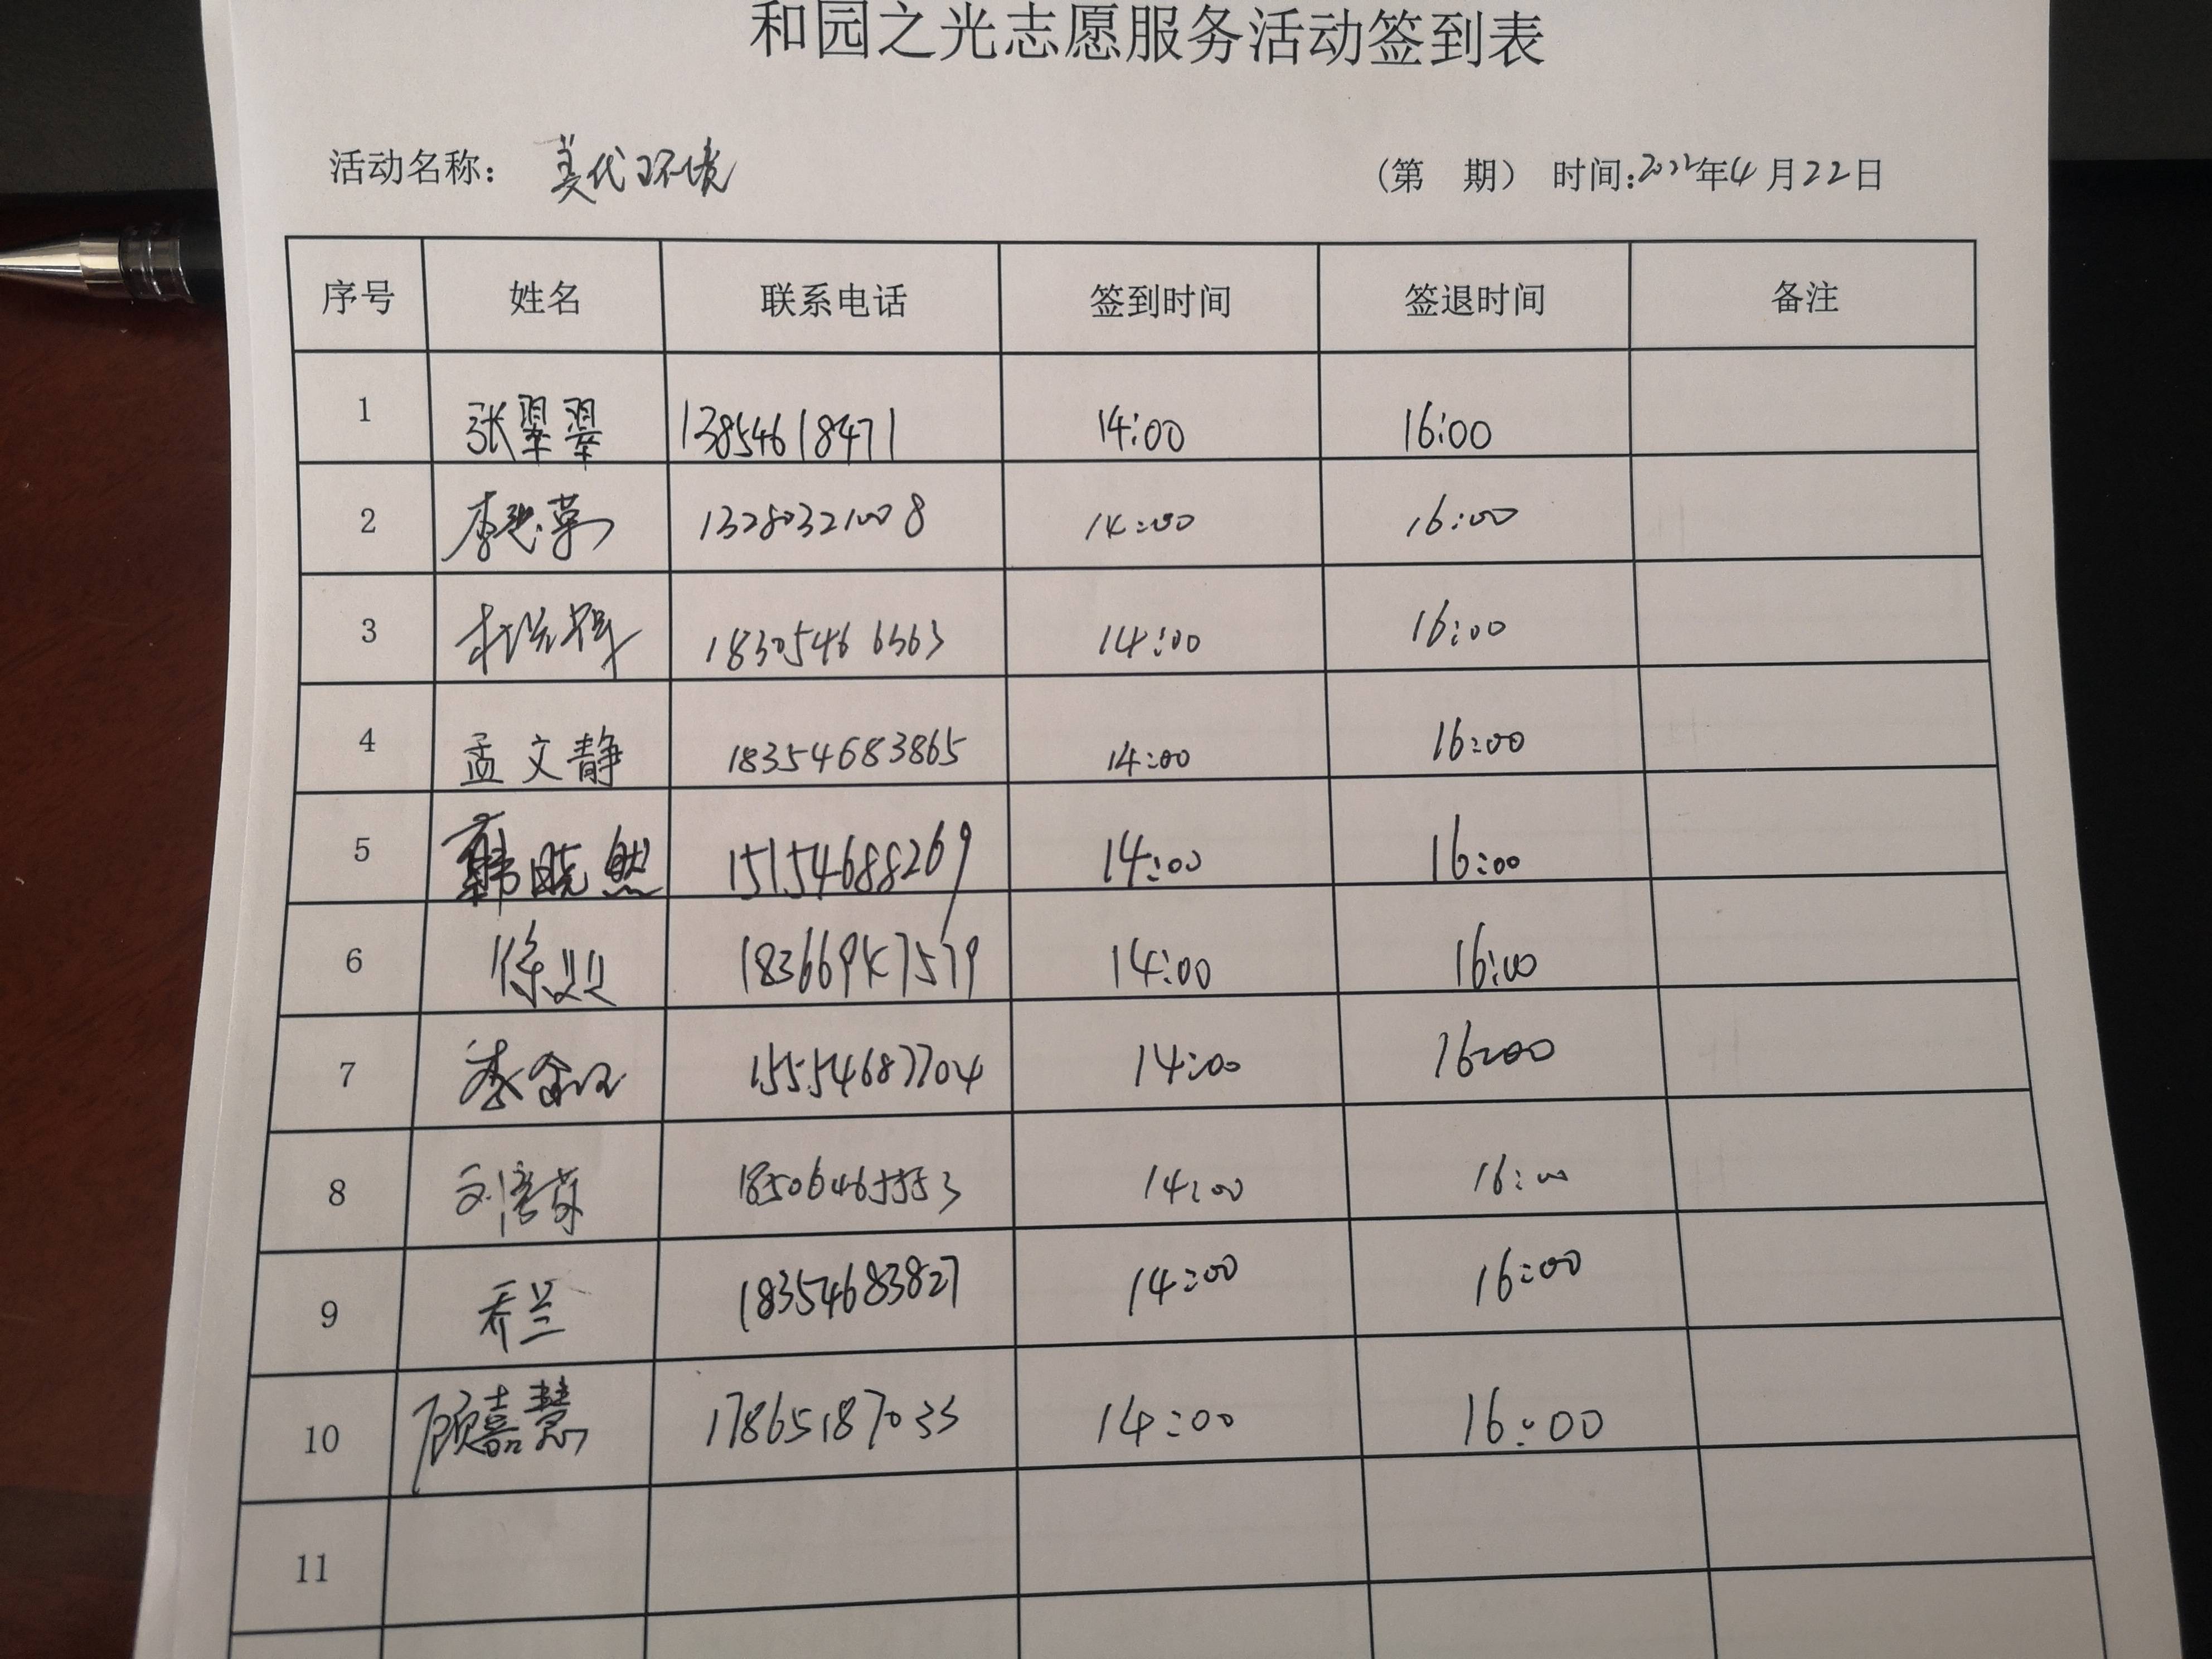 和园之光志愿服务活动签到表
活动名称：美化环境 （第 期） 时间：2022年4月22日
序号 姓名 联系电话 签到时间 签退时间 备注
1 张翠翠 13854618471 14:00 16:00
2 13280321008 14:00 16:00
3 18305466563 14:00 16:00
4 孟文静 18354683865 14:00 16:00
5 韩晓然 15154688269 14:00 16:00
6 徐双双 18366947579 14:00 16:00
7 15554687704 14:00 16:00
8 18506465553 14:00 16:00
9 乔兰 18354683827 14:00 16:00
10 顾嘉慧 17865187033 14:00 16:00
11